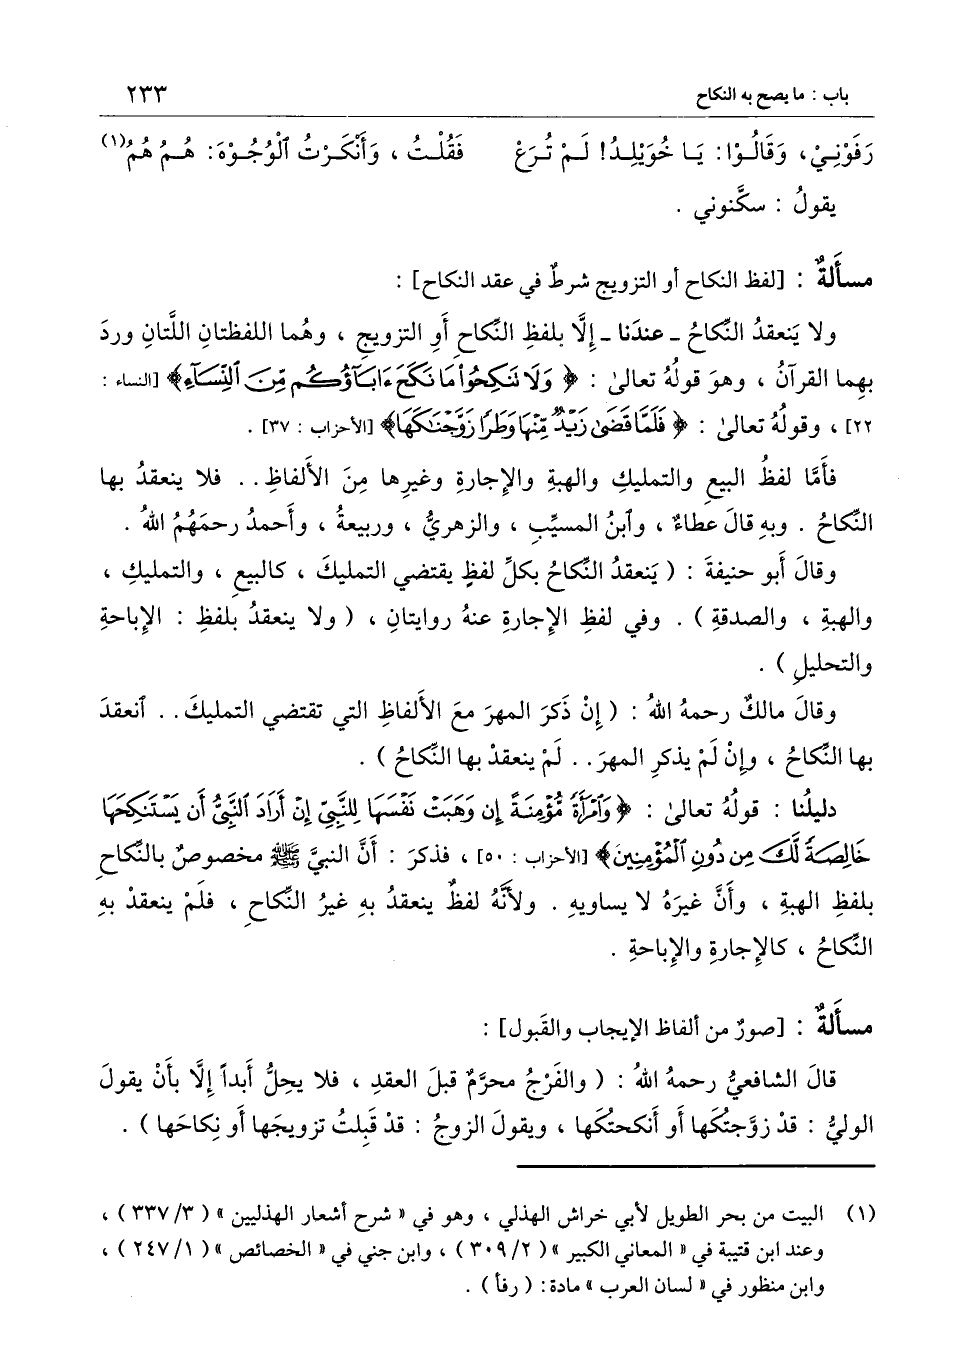 باب : ما يصح به النكاح ٢٣٣
رَفَوْنِـيْ، وَقَالُـوْا: يَـا خُوَيْلِـدُ! لَـمْ تُـرَعْ فَقُلْـتُ ، وَأَنْكَـرْتُ ٱلْوُجُـوْهَ: هُـمُ هُمُ(١)
يقولُ : سكَّنوني .
مسأَلةٌ : [لفظ النكاح أو التزويج شرطٌ في عقد النكاح] :
ولا يَنعقدُ النِّكاحُ ـ عندَنا ـ إِلَّا بلفظِ النِّكاحِ أَوِ التزويجِ ، وهُما اللفظتانِ اللَّتانِ وردَ
بهِما القرآنُ ، وهوَ قولُهُ تعالىٰ : ﴿ وَلَا تَنكِحُوا۟ مَا نَكَحَ ءَابَآؤُكُم مِّنَ ٱلنِّسَآءِ﴾ [النساء :
٢٢] ، وقولُهُ تعالىٰ : ﴿ فَلَمَّا قَضَىٰ زَيْدٌ مِّنْهَا وَطَرًا زَوَّجْنَـٰكَهَا﴾ [الأحزاب : ٣٧] .
فأَمَّا لفظُ البيعِ والتمليكِ والهبةِ والإِجارةِ وغيرِها مِنَ الأَلفاظِ . . فلا ينعقدُ بها
النِّكاحُ . وبهِ قالَ عطاءٌ ، وٱبنُ المسيِّبِ ، والزهريُّ ، وربيعةُ ، وأَحمدُ رحمَهُمُ اللهُ .
وقالَ أَبو حنيفةَ : ( يَنعقدُ النِّكاحُ بكلِّ لفظٍ يقتضي التمليكَ ، كالبيعِ ، والتمليكِ ،
والهبةِ ، والصدقةِ ) . وفي لفظِ الإِجارةِ عنهُ روايتانِ ، ( ولا ينعقدُ بلفظِ : الإِباحةِ
والتحليلِ ) .
وقالَ مالكٌ رحمهُ اللهُ : ( إِنْ ذَكرَ المهرَ معَ الأَلفاظِ التي تقتضي التمليكَ . . ٱنعقدَ
بها النِّكاحُ ، وإِنْ لَمْ يذكرِ المهرَ . . لَمْ ينعقدْ بها النِّكاحُ ) .
دليلُنا : قولُهُ تعالىٰ : ﴿ وَٱمْرَأَةً مُّؤْمِنَةً إِن وَهَبَتْ نَفْسَهَا لِلنَّبِيِّ إِنْ أَرَادَ ٱلنَّبِيُّ أَن يَسْتَنكِحَهَا
خَالِصَةً لَّكَ مِن دُونِ ٱلْمُؤْمِنِينَ﴾ [الأحزاب : ٥٠] ، فذكرَ : أَنَّ النبيَّ ﷺ مخصوصٌ بالنِّكاحِ
بلفظِ الهبةِ ، وأَنَّ غيرَهُ لا يساويهِ . ولأَنَّهُ لفظٌ ينعقدُ بهِ غيرُ النِّكاحِ ، فلَمْ ينعقدْ بهِ
النِّكاحُ ، كالإِجارةِ والإِباحةِ .
مسأَلةٌ : [صورٌ من ألفاظ الإيجاب والقَبول] :
قالَ الشافعيُّ رحمهُ اللهُ : ( والفَرْجُ محرَّمٌ قبلَ العقدِ ، فلا يحلُّ أَبداً إِلَّا بأَنْ يقولَ
الوليُّ : قدْ زوَّجتُكَها أَو أَنكحتُكَها ، ويقولَ الزوجُ : قدْ قَبِلتُ تزويجَها أَو نِكاحَها ) .
(١) البيت من بحر الطويل لأبي خراش الهذلي ، وهو في « شرح أشعار الهذليين » ( ٣/ ٣٣٧ ) ،
وعند ابن قتيبة في « المعاني الكبير » ( ٢/ ٣٠٩ ) ، وابن جني في « الخصائص » ( ١/ ٢٤٧ ) ،
وابن منظور في « لسان العرب » مادة : ( رفأ ) .